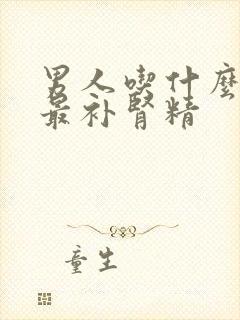 男人喫什麼
最补腎精
童生